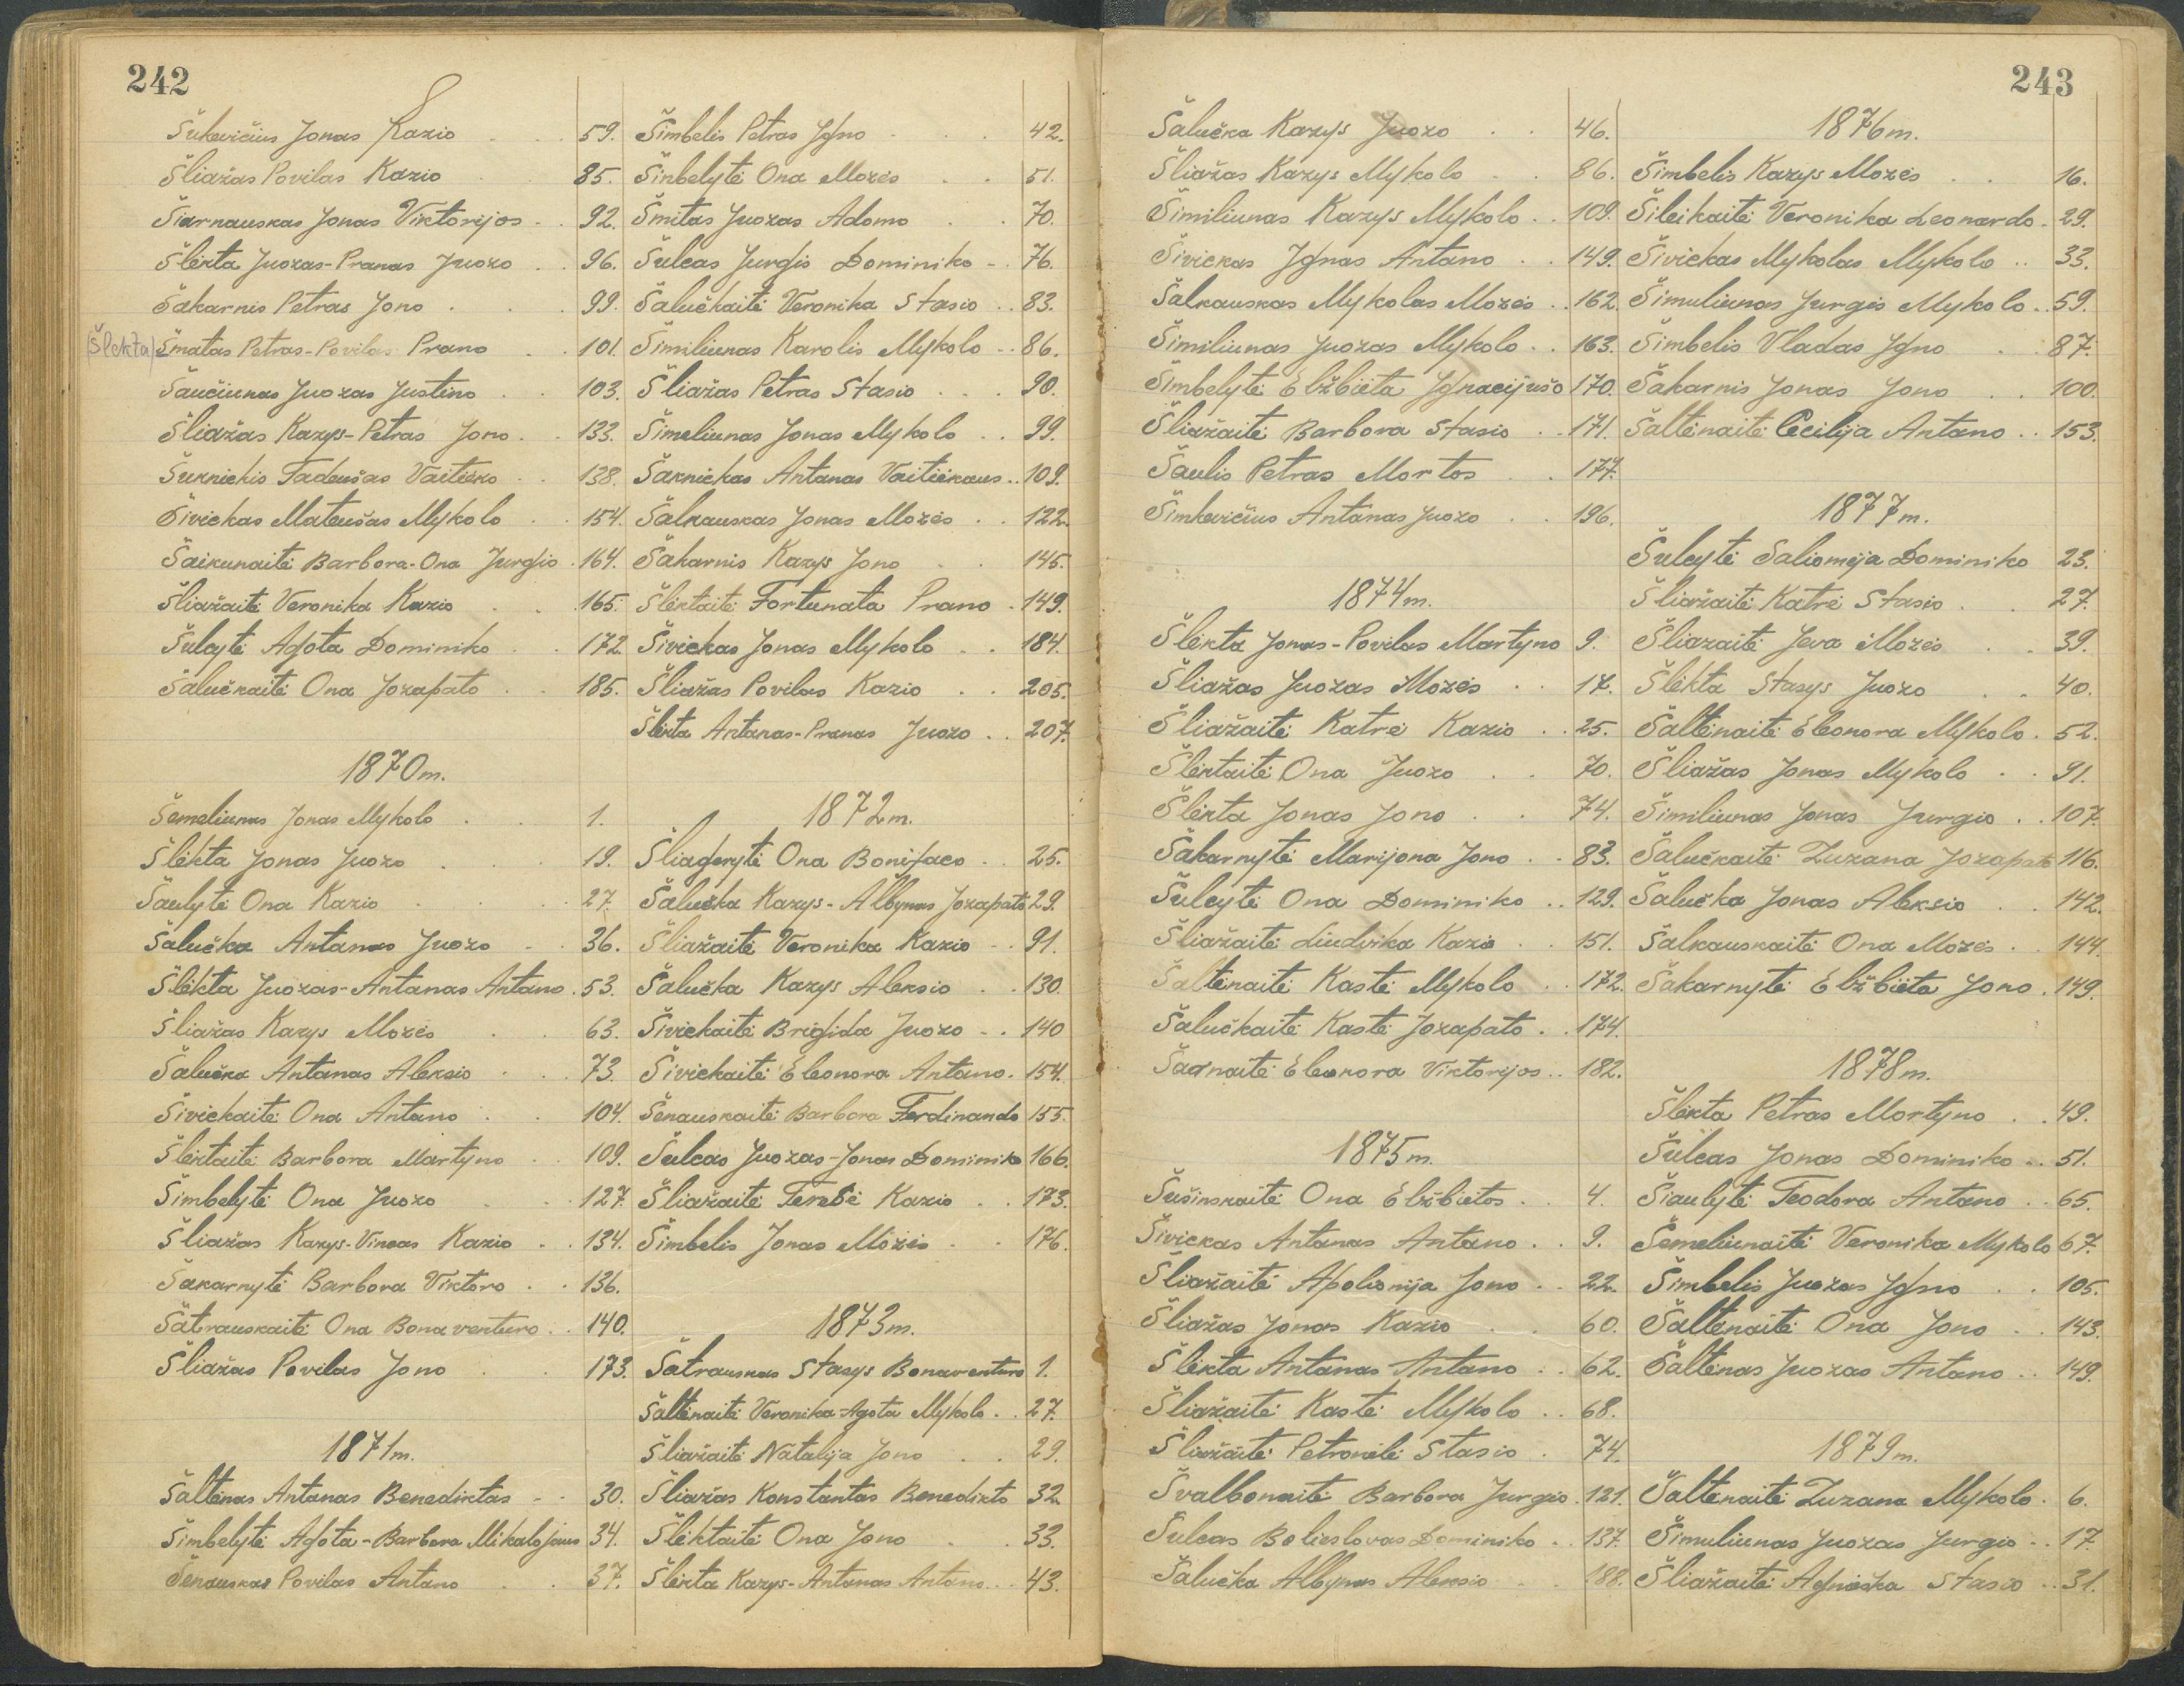 242
Šukevičius Jonas Kazio . . 59.
Šliažas Povilas Kazio . . 85.
Šiarnauskas Jonas Viktorijos . . 92.
Šlekta Juozas-Pranas Juozo . . 96.
Šakarnis Petras Jono . . . 99.
(Šlekta) Šmatas Petras-Povilas Prano . . 101.
Šaučiunas Juozas Justino . . 103.
Šliažas Kazys-Petras Jono . . 133.
Šukniekis Tadeušas Vaitieko . . 138.
Šivickas Mateušas Mykolo . . 154.
Šaikunaitė Barbora-Ona Jurgio . 164.
Šliažaitė Veronika Kazio . . . 165.
Šulcytė Agota Dominiko . . 172.
Šalučkaitė Ona Jozapato . . 185.
1870m.
Šemeliunas Jonas Mykolo . . 1.
Šlėkta Jonas Juozo . . . 19.
Šaulytė Ona Kazio . . . 27.
Šalučka Antanas Juozo . . 36.
Šlėkta Juozas-Antanas Antano . 53.
Šliažas Kazys Mozės . . 63.
Šalučka Antanas Aleksio . . 73.
Šivickaitė Ona Antano . . 104.
Šlėktaitė Barbora Martyno . . 109.
Šimbelytė Ona Juozo . . 127.
Šliažas Kazys-Vincas Kazio . . 134.
Šakarnytė Barbora Viktoro . . 136.
Šatrauskaitė Ona Bonaventuro . . 140.
Šliažas Povilas Jono . . 173.
1871m.
Šaltenas Antanas Benediktas . . 30.
Šimbelytė Agota-Barbora Mikalojaus 34.
Šenauskas Povilas Antano . . 37.
Šimbelis Petras Igno . . . 42.
Šinbelytė Ona Mozės . . 51.
Šmitas Juozas Adomo . . 70.
Šulcas Jurgis Dominiko . . 76.
Šalučkaitė Veronika Stasio . . 83.
Šimiliunas Karolis Mykolo . . 86.
Šliažas Petras Stasio . . . 90.
Šimeliunas Jonas Mykolo . . 99.
Šakniekas Antanas Vaitiekaus . . 109.
Šalkauskas Jonas Mozės . . 122.
Šakarnis Kazys Jono . . 145.
Šlėktaitė Fortunata Prano . 149.
Šivickas Jonas Mykolo . . 184.
Šliažas Povilas Kazio . . 205.
Šlėkta Antanas-Pranas Juozo . . 207.
1872m.
Šliagerytė Ona Bonifaco . . 25.
Šalučka Kazys-Albynas Jozapato 29.
Šliažaitė Veronika Kazio . . 91.
Šalučka Kazys Aleksio . . 130.
Šivickaitė Brigida Juozo . . 140
Šivickaitė Eleonora Antano . 154.
Šenauskaitė Barbora Ferdinando 155.
Šulcas Juozas-Jonas Dominiko 166.
Šliažaitė Teresė Kazio . . 173.
Šimbelis Jonas Mozės . . 176.
1873m.
Šatrauskas Stasys Bonaventuro 1.
Šaltenaitė Veronika-Agota Mykolo . . 27.
Šliažaitė Natalija Jono . . 29.
Šliažas Konstantas Benedikto 32.
Šlėktaitė Ona Jono . . 33.
Šlėkta Kazys-Antanas Antano . . 43.
243
Šalučka Kazys Juozo . . 46.
Šliažas Kazys Mykolo . . 86.
Šimiliunas Kazys Mykolo . . 109.
Šivickas Ignas Antano . . 149.
Šalkauskas Mykolas Mozės . . 162.
Šimiliunas Juozas Mykolo . . 163.
Šimbelytė Elžbieta Ignacijušo 170.
Šliažaitė Barbora Stasio . . 171.
Šaulis Petras Mortos . . 177.
Šimkevičius Antanas Juozo . . 196.
1874m.
Šlėkta Jonas-Povilas Martyno 9.
Šliažas Juozas Mozės . . 17.
Šliažaitė Katrė Kazio . . 25.
Šlėktaitė Ona Juozo . . 70.
Šlėkta Jonas Jono . . 74.
Šakarnytė Marijona Jono . . 83.
Šulcytė Ona Dominiko . . 129.
Šliažaitė Liudvika Kazio . . 151.
Šaltenaitė Kastė Mykolo . . 172.
Šalučkaitė Kastė Jozapato . . 174.
Šadnaitė Eleonora Viktorijos . . 182.
1875m.
Šušinskaitė Ona Elžbietos . . 4.
Šivickas Antanas Antano . . 9.
Šliažaitė Apolionija Jono . . 22.
Šliažas Jonas Kazio . . 60.
Šlėkta Antanas Antano . . 62.
Šliažaitė Kastė Mykolo . . 68.
Šliažaitė Petronėlė Stasio . 74.
Švalbonaitė Barbora Jurgio . 121.
Šulcas Bolieslovas Dominiko . . 137.
Šalučka Albynas Aleksio . . 188.
1876m.
Šimbelis Kazys Mozės . . 16.
Šileikaitė Veronika Leonardo . 29.
Šivickas Mykolas Mykolo . . 33.
Šimuliunas Jurgis Mykolo . . 59.
Šimbelis Vladas Igno . . 87.
Šakarnis Jonas Jono . . 100.
Šaltėnaitė Cecilija Antano . . 153.
1877m.
Šulcytė Saliomėja Dominiko 23.
Šliažaitė Katrė Stasio . . 27.
Šliazaitė Jeva Mozės . . 39.
Šlėkta Stasys Juozo . . 40.
Šaltėnaitė Eleonora Mykolo . 52.
Šliažas Jonas Mykolo . . 91.
Šimiliunas Jonas Jurgio . . 107.
Šalučkaitė Zuzana Jozapato 116.
Šalučka Jonas Aleksio . . 142.
Šalkauskaitė Ona Mozės . . 144.
Šakarnytė Elžbieta Jono . 149.
1878m.
Šlėkta Petras Mortyno . . 49.
Šulcas Jonas Dominiko . . 51.
Šiaulytė Teodora Antano . . 65.
Šemeliunaitė Veronika Mykolo 67.
Šimbelis Juozas Igno . . 105.
Šaltenaitė Ona Jono . . 143.
Šaltenas Juozas Antano . . 149.
1879m.
Šaltenaitė Zuzana Mykolo . 6.
Šimuliunas Juozas Jurgio . . 17.
Šliažaitė Agnieška Stasio . . 31.